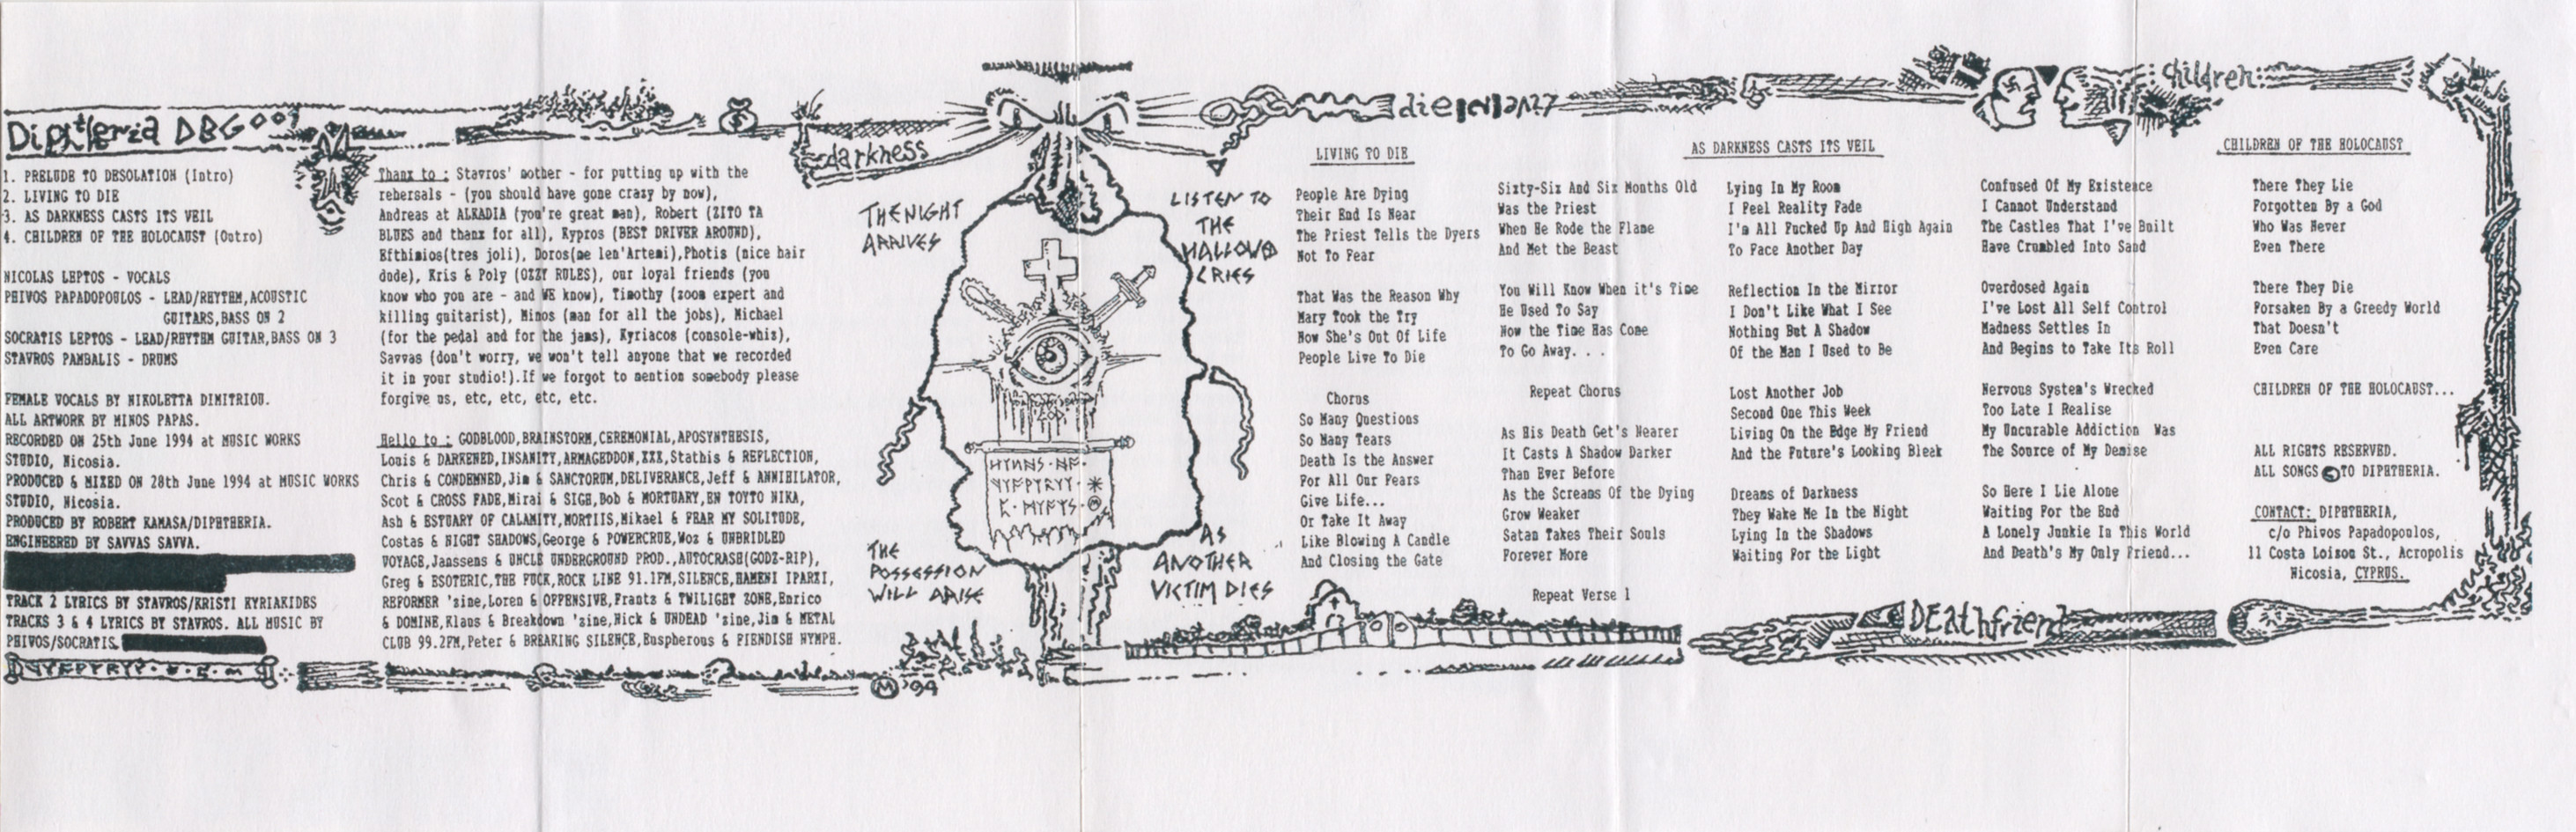 Diphtheria DBG001
1. PRELUDE TO DESOLATION (Intro)
2. LIVING TO DIE
3. AS DARKNESS CASTS ITS VEIL
4. CHILDREN OF THE HOLOCAUST (Outro)
NICOLAS LEPTOS - VOCALS
PHIVOS PAPADOPOULOS - LEAD/RHYTHM,ACOUSTIC
GUITARS,BASS ON 2
SOCRATIS LEPTOS - LEAD/RHYTHM GUITAR,BASS ON 3
STAVROS PAMBALIS - DRUMS
FEMALE VOCALS BY NIKOLETTA DIMITRIOU.
ALL ARTWORK BY MINOS PAPAS.
RECORDED ON 25th June 1994 at MUSIC WORKS
STUDIO, Nicosia.
PRODUCED & MIXED ON 28th June 1994 at MUSIC WORKS
STUDIO, Nicosia.
PRODUCED BY ROBERT KAMASA/DIPHTHERIA.
ENGINEERED BY SAVVAS SAVVA.
TRACK 2 LYRICS BY STAVROS/KRISTI KYRIAKIDES
TRACKS 3 & 4 LYRICS BY STAVROS. ALL MUSIC BY
PHIVOS/SOCRATIS.
Thanx to : Stavros' mother - for putting up with the
rehersals - (you should have gone crazy by now),
Andreas at ALKADIA (you're great man), Robert (ZITO TA
BLUES and thanx for all), Kypros (BEST DRIVER AROUND),
Efthimios(tres joli), Doros(me len'Artemi),Photis (nice hair
dude), Kris & Poly (OZZY RULES), our loyal friends (you
know who you are - and WE know), Timothy (zoom expert and
killing guitarist), Minos (man for all the jobs), Michael
(for the pedal and for the jams), Kyriacos (console-whis),
Savvas (don't worry, we won't tell anyone that we recorded
it in your studio!).If we forgot to mention somebody please
forgive us, etc, etc, etc, etc.
Hello to : GODBLOOD,BRAINSTORM,CEREMONIAL,APOSYNTHESIS,
Louis & DARKENED,INSANITY,ARMAGEDDON,XXX,Stathis & REFLECTION,
Chris & CONDEMNED,Jim & SANCTORUM,DELIVERANCE,Jeff & ANNIHILATOR,
Scot & CROSS FADE,Mirai & SIGH,Bob & MORTUARY,EN TOYTO NIKA,
Ash & ESTUARY OF CALAMITY,MORTIIS,Mikael & FEAR MY SOLITUDE,
Costas & NIGHT SHADOWS,George & POWERCRUE,Woz & UNBRIDLED
VOYAGE,Janssens & UNCLE UNDERGROUND PROD.,AUTOCRASH(GODZ-RIP),
Greg & ESOTERIC,THE FUCK,ROCK LINE 91.1FM,SILENCE,HAMENI IPARXI,
REFORMER 'zine,Loren & OFFENSIVE,Frantz & TWILIGHT ZONE,Enrico
& DOMINE,Klaus & Breakdown 'zine,Nick & UNDEAD 'zine,Jim & METAL
CLUB 99.2FM,Peter & BREAKING SILENCE,Euspherous & FIENDISH NYMPH.
M '94
darkness
THE NIGHT
ARRIVES
LISTEN TO
THE
HALLOWED
CRIES
THE
POSSESSION
WILL ARISE
AS
ANOTHER
VICTIM DIES
die
LIVING TO DIE
People Are Dying
Their End Is Near
The Priest Tells the Dyers
Not To Fear
That Was the Reason Why
Mary Took the Try
Now She's Out Of Life
People Live To Die
Chorus
So Many Questions
So Many Tears
Death Is the Answer
For All Our Fears
Give Life...
Or Take It Away
Like Blowing A Candle
And Closing the Gate
Sixty-Six And Six Months Old
Was the Priest
When He Rode the Flame
And Met the Beast
You Will Know When it's Time
He Used To Say
Now the Time Has Come
To Go Away. . .
Repeat Chorus
As His Death Get's Nearer
It Casts A Shadow Darker
Than Ever Before
As the Screams Of the Dying
Grow Weaker
Satan Takes Their Souls
Forever More
Repeat Verse 1
AS DARKNESS CASTS ITS VEIL
Lying In My Room
I Feel Reality Fade
I'm All Fucked Up And High Again
To Face Another Day
Reflection In the Mirror
I Don't Like What I See
Nothing But A Shadow
Of the Man I Used to Be
Lost Another Job
Second One This Week
Living On the Edge My Friend
And the Future's Looking Bleak
Dreams of Darkness
They Wake Me In the Night
Lying In the Shadows
Waiting For the Light
Confused Of My Existence
I Cannot Understand
The Castles That I've Built
Have Crumbled Into Sand
Overdosed Again
I've Lost All Self Control
Madness Settles In
And Begins to Take Its Roll
Nervous System's Wrecked
Too Late I Realise
My Uncurable Addiction Was
The Source of My Demise
So Here I Lie Alone
Waiting For the End
A Lonely Junkie In This World
And Death's My Only Friend...
DEAthfriend
children
CHILDREN OF THE HOLOCAUST
There They Lie
Forgotten By a God
Who Was Never
Even There
There They Die
Forsaken By a Greedy World
That Doesn't
Even Care
CHILDREN OF THE HOLOCAUST...
ALL RIGHTS RESERVED.
ALL SONGS © TO DIPHTHERIA.
CONTACT: DIPHTHERIA,
c/o Phivos Papadopoulos,
11 Costa Loizou St., Acropolis
Nicosia, CYPRUS.